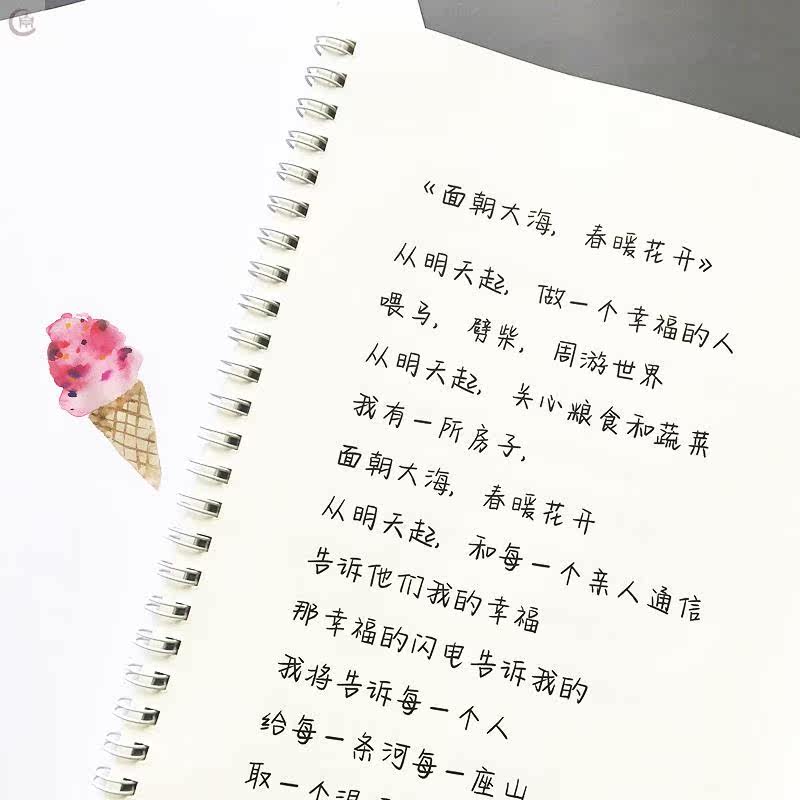 《面朝大海，春暖花开》
从明天起，做一个幸福的人
喂马，劈柴，周游世界
从明天起，关心粮食和蔬菜
我有一所房子，
面朝大海，春暖花开
从明天起，和每一个亲人通信
告诉他们我的幸福
那幸福的闪电告诉我的
我将告诉每一个人
给每一条河每一座山
取一个温